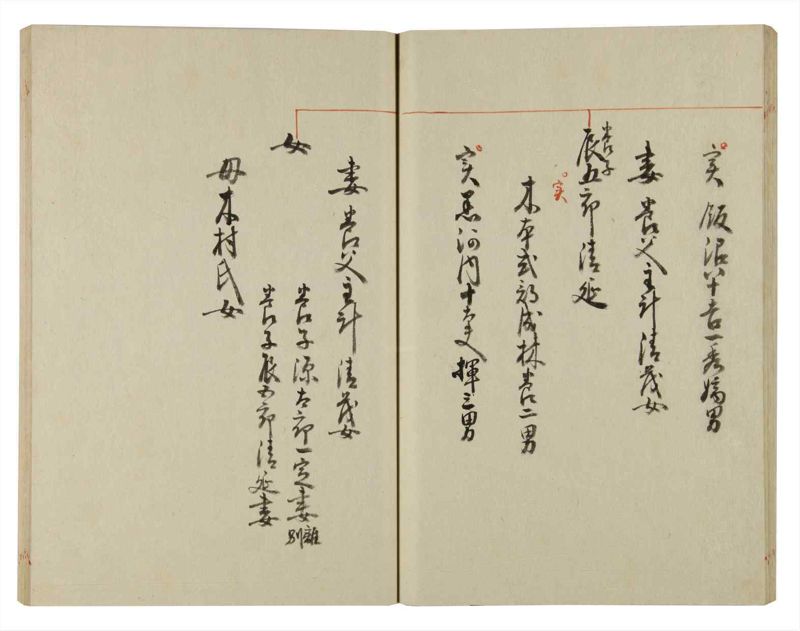 実 飯沼八十吉一秀嫡男
妻 養父主計清茂女
養子
辰五郎清延
実
木本武部成林養二男
実 黒河内十太夫揮三男
妻 養父主計清茂女
女
養子源太郎一定妻 離別
養子辰五郎清延妻
母木村氏女